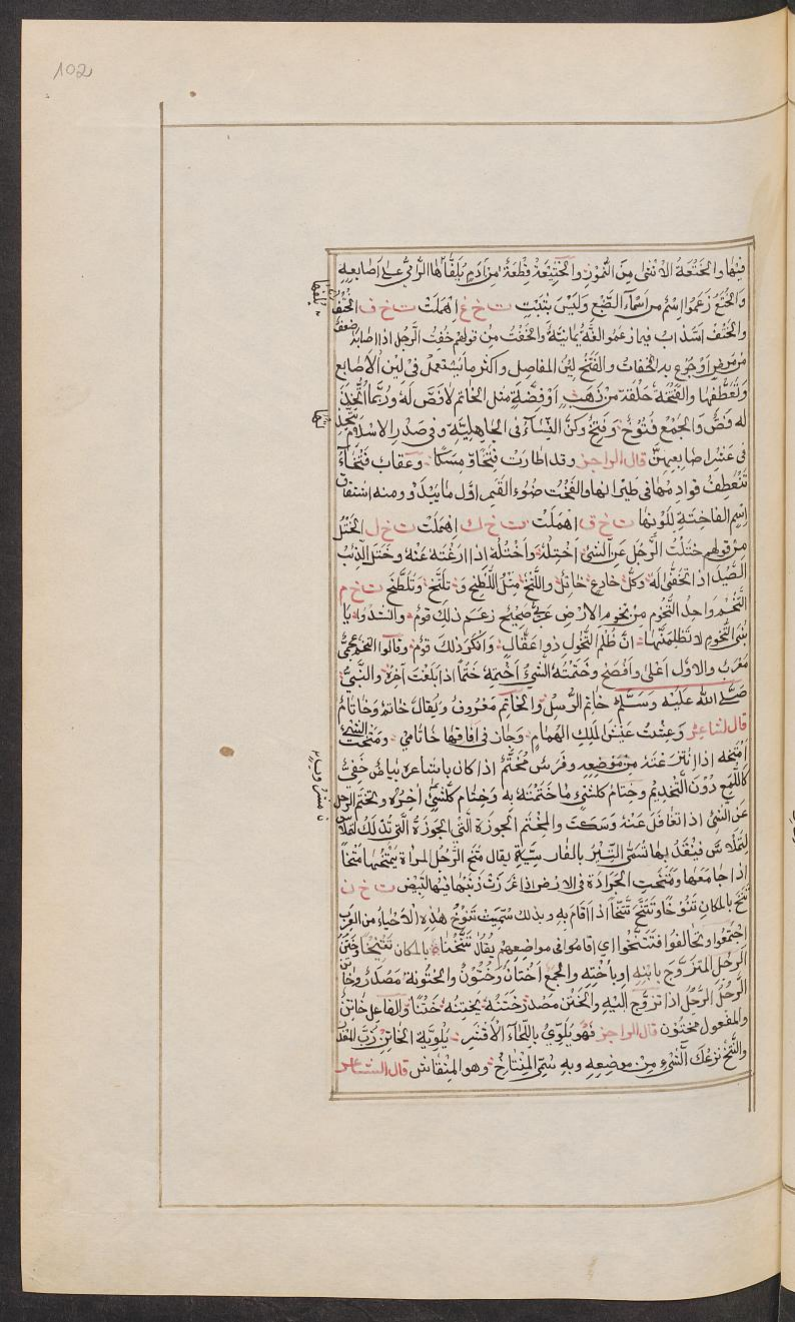 102
فيها والختعة الأنثى من النمور والختيعة قطعة من أدم يلفها الرامي على أصابعه
والختع زعموا اسم من أسماء الضبع وليس بثبت ت خ غ أهملت ت خ ف الخفت
والختف السذاب فيما زعموا لغة يمانية والخفت من قولهم خفت الرجل إذا أصابه ضعف
من مرض أو جوع به الخفات والفتخ لين المفاصل وأكثر ما يستعمل في لين الأصابع
وتعطفها والفتخة حلقة من ذهب أو فضة مثل الخاتم لا فص له وربما اتخذ
له فص والجمع فتوخ وفتخ وكن النساء في الجاهلية وفي صدر الإسلام يتخذنها
في عشر أصابعهن قال الراجز وقد أطارت فتخا ومسكا وعقاب فتخاء
تنعطف قوادمها في طيرانها والفخت ضوء القمر أول ما يبدو ومنه اشتقاق
اسم الفاختة للونها ت خ ق أهملت ت خ ك أهملت ت خ ل الختل
من قولهم ختلت الرجل عن الشيء أختله وأختله إذا أرغته عنه وختل الذئب
الصيد إذا تخفى له وكل خادع خاتل واللتخ مثل اللطخ وتلتخ وتلطخ ت خ م
التخم واحد التخوم من تخوم الأرض عربي صحيح زعم ذلك قوم وأنشدوا يا
بني التخوم لا تظلموها إن ظلم التخوم ذو عقال وأنكر ذلك قوم وقالوا التخم عجمي
معرب والأول أعلى وأفصح وختمت الشيء أختمه ختما إذا بلغت آخره والنبي
صلى الله عليه وسلم خاتم الرسل والخاتم معروف ويقال خاتم وخاتام
قال الشاعر وعشت عيش الملك الهمام وجاز في آفاقها خاتامي ومتخت الشيء
أمتخه إذا انتزعته من موضعه وفرس مختم إذا كان بأشاعره بياض خفي
كاللمع دون التخديم وختام كل شيء ما ختمته به وختام كل شيء آخره وتختم الرجل
عن الشيء إذا تغافل عنه وسكت والمختم الجوزة التي
ليتملاس فينقد بها تسمى التير بالفارسية يقال متخ الرجل المرأة يمتخها متخا
إذا جامعها ومتخت الجرادة في الأرض إذا غرزت ذنبها فيها لتبيض ت خ ن
تنخ بالمكان تنوخا وتنتخ تنخا إذا أقام به وبذلك سميت تنوخ هذه الأحياء من العرب
اجتمعوا وتحالفوا فتنخوا أي أقاموا في مواضعهم يقال تنخنا بالمكان تنيخا وختن
الرجل المتزوج بابنته أو بأخته والجمع أختان وختون والختونة مصدر وخاتن
الرجل الرجل إذا تزوج إليه والختن مصدر ختنه يختنه ختنا والفاعل خاتن
والمفعول مختون قال الراجز فهو يلوي باللحاء الأقشر تلوية الخاتن زب المعذر
والنتخ نزعك الشيء من موضعه وبه سمي المنتاخ وهو المنقاش قال الشاعر